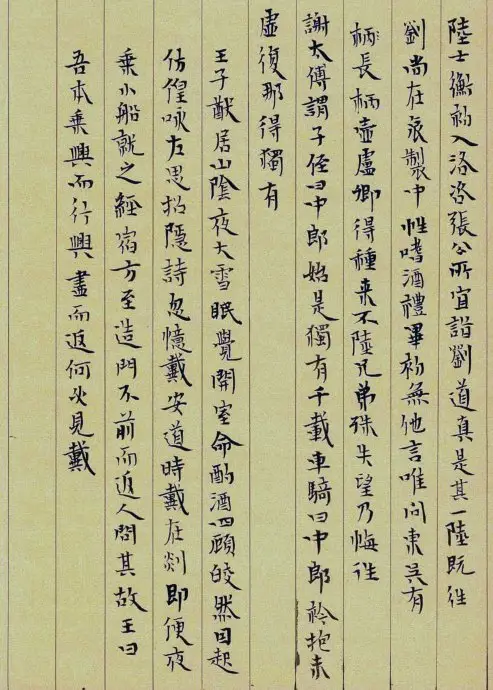 陸士衡初入洛咨張公所宜詣劉道真是其一陸既往
劉尚在哀製中性嗜酒禮畢初無他言唯问東吴有
柄長柄壺盧卿得種来不陸兄弟殊失望乃悔往
謝太傅謂子侄曰中郎始是獨有千載車騎曰中郎衿抱未
虚復那得獨有
王子猷居山陰夜大雪眠覺開室命酌酒四顧皎然因起
仿偟咏左思招隱詩忽憶戴安道時戴在剡即便夜
乘小船就之經宿方至造門不前而返人問其故王曰
吾本乗興而行興盡而返何必見戴